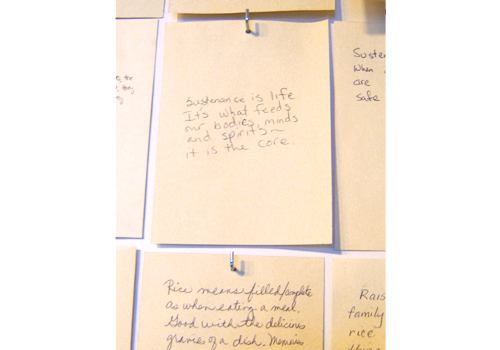 Sustenance is life
Its what feeds
our bodies, minds
and spirits~
it is the core.
Susten
When
are
safe
Rice means filled/complete
as when eating a meal.
Good with the delicious
gravies of a dish. Memories
Rais
family
rice